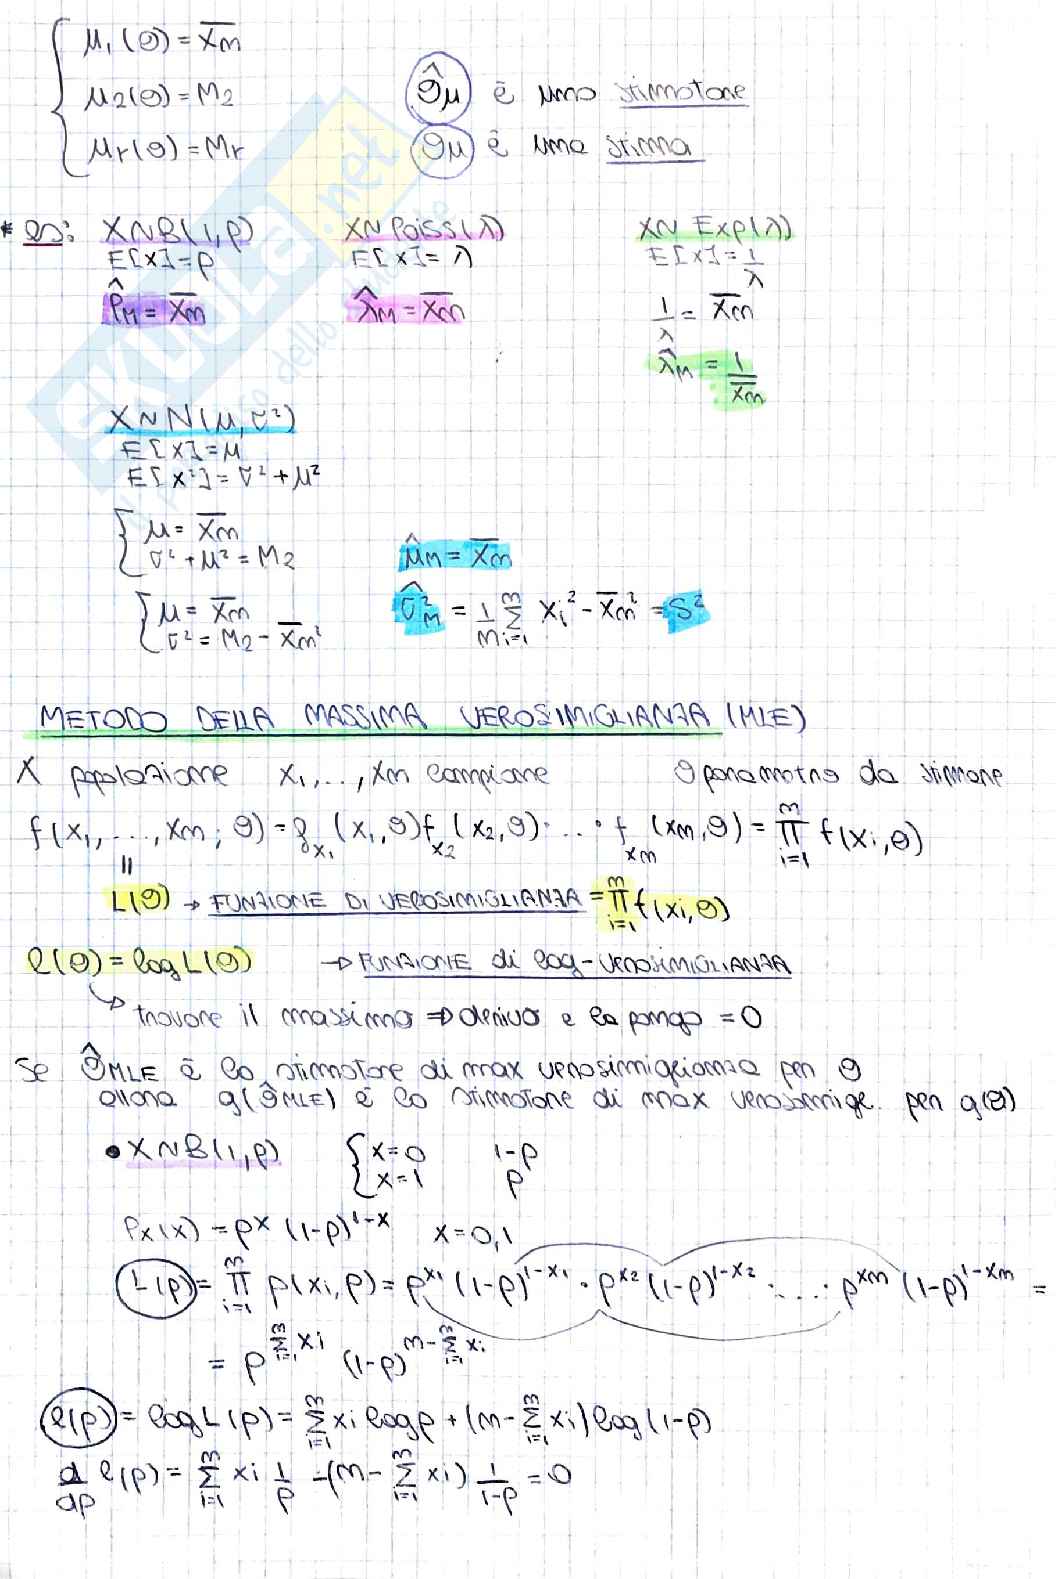 μ₁(θ) = X̄n
μ₂(θ) = M₂
μr(θ) = Mr
θ̂μ è uno stimatore
θμ è una stima
* es: X~B(1,p) X~Poiss(λ) X~Exp(λ)
E[X]=p E[X]=λ E[X]=1/λ
p̂M = X̄n λ̂M = X̄n 1/λ = X̄n
λ̂M = 1/X̄n
X~N(μ,σ²)
E[X]=μ
E[X²]=σ²+μ²
μ = X̄n
σ²+μ²=M₂
μ̂M = X̄n
μ = X̄n
σ²=M₂-X̄n²
σ̂²M = 1/n Σⁿi=1 Xi² - X̄n² = S²
METODO DELLA MASSIMA VEROSIMIGLIANZA (MLE)
X popolazione X₁,..,Xn campione θ parametro da stimare
f(x₁,...,xn;θ)=fx₁(x₁,θ)fx₂(x₂,θ)·...·fxn(xn,θ)=∏ⁿi=1 f(xi,θ)
||
L(θ) → FUNZIONE DI VEROSIMIGLIANZA = ∏ⁿi=1 f(xi,θ)
ℓ(θ)=logL(θ) → FUNZIONE di log-VEROSIMIGLIANZA
↪ trovare il massimo ⇒ derivo e la pongo =0
Se θ̂MLE è lo stimatore di max verosimiglianza per θ
allora g(θ̂MLE) è lo stimatore di max verosimigl. per g(θ)
• X~B(1,p) x=0 1-p
x=1 p
Px(x)=pˣ(1-p)¹⁻ˣ x=0,1
L(p)=∏ⁿi=1 p(xi,p)=p^x₁(1-p)^1-x₁ · p^x₂(1-p)^1-x₂ ·...· p^xn(1-p)^1-xn =
= p^Σⁿi=1 xi (1-p)^n-Σⁿi=1 xi
ℓ(p)=logL(p)=Σⁿi=1 xi logp+(n-Σⁿi=1 xi)log(1-p)
d/dp ℓ(p)=Σⁿi=1 xi 1/p -(n-Σⁿi=1 xi) 1/1-p =0
SKUOLA.net